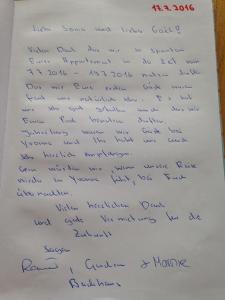 17.7.2016
Liebe Sonia und lieber Gabi!
Vielen Dank das wir so spontan
Euer Appartement in der Zeit vom
7.7.2016 - 19.7.2016 nutzen durften
Das wir Eure ersten Gäste waren
freut uns natürlich sehr. Es hat
uns sehr gut gefallen und das wir
Euren Pool benutzen durften
Jahrelang waren wir Gäste bei
Yvonne und Ihr habt uns auch
sehr herzlich empfangen.
Gern würden wir, wenn unsere Reise
wieder zu Yvonne führt, bei Euch
übernachten.
Vielen herzlichen Dank
und gute Vermietung für die
Zukunft
sagen
, Gudrun +